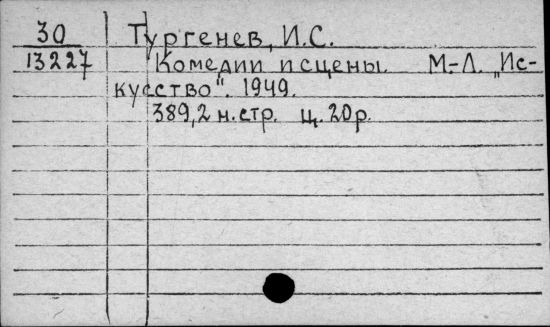 30 Тургенев, И.С.
13227 Комедии и сцены. М.-Л. „Ис-
кусство". 1949.
389,2 н.стр. ц. 20р.